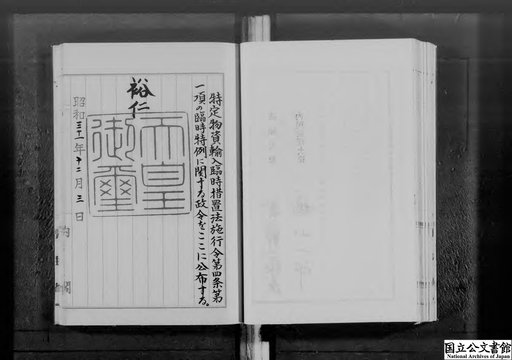 特定物資輸入臨時措置法施行令第四条第
一項の臨時特例に関する政令をここに公布する。
裕仁
天皇
御璽
昭和三十一年十二月三日
内閣
国立公文書館
National Archives of Japan